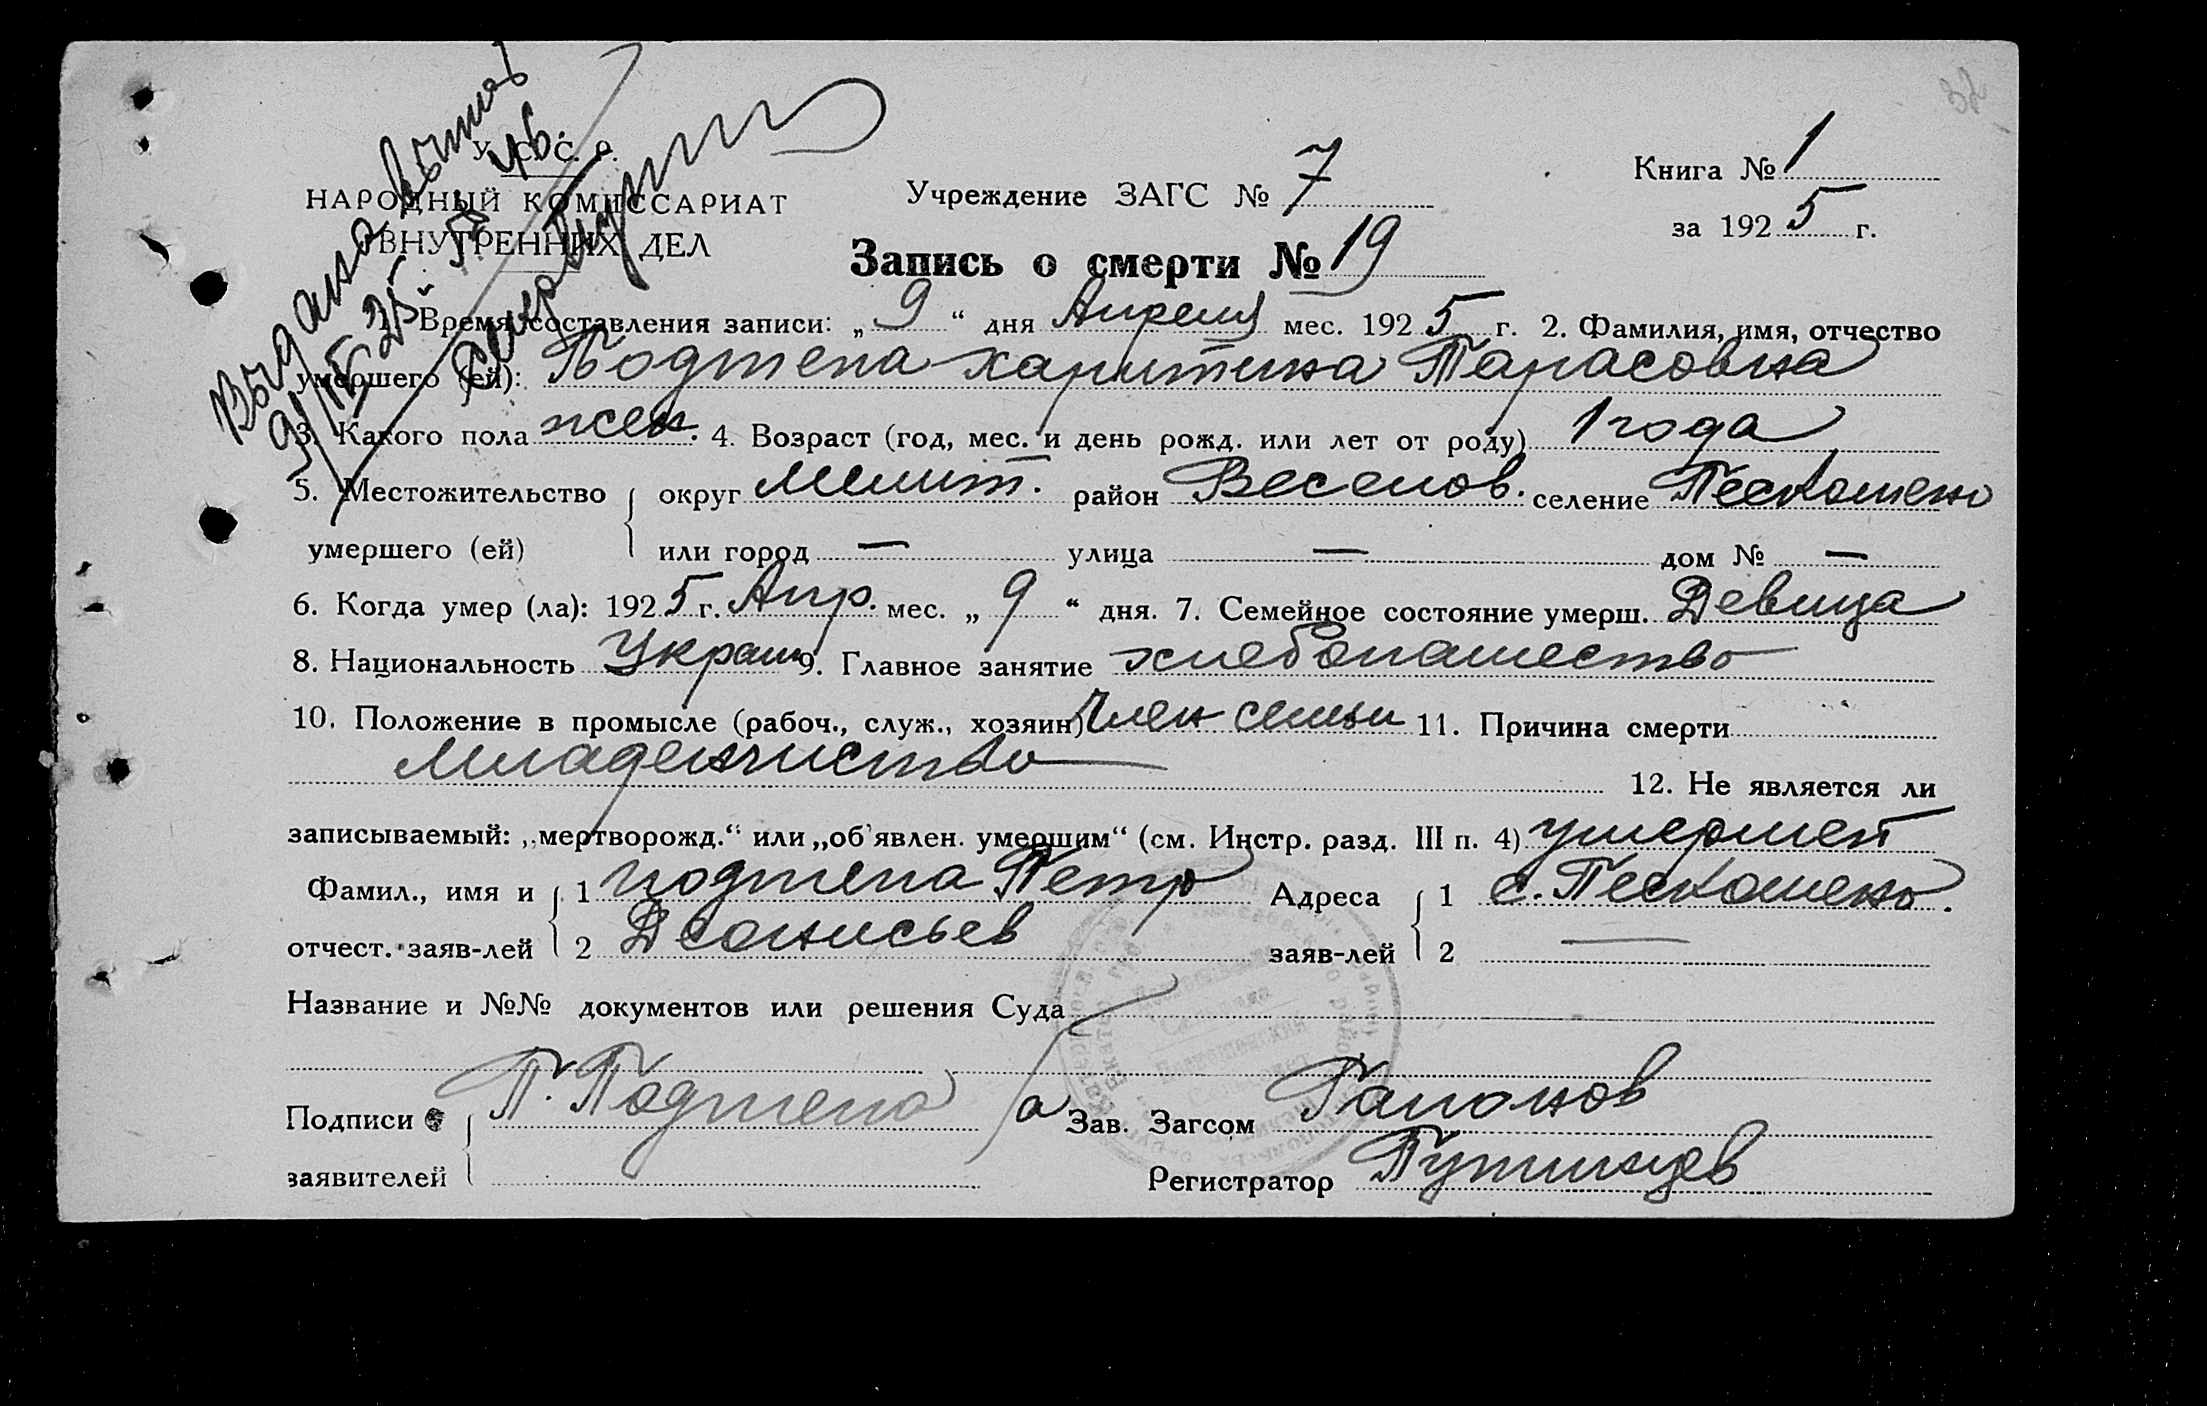 У. С. С. Р.
НАРОДНЫЙ КОМИССАРИАТ
ВНУТРЕННИХ ДЕЛ
Учреждение ЗАГС № 7
Книга № 1
за 1925 г.
Запись о смерти № 19
Выдана выпись
9/IV 25
1. Время составления записи: „9“ дня Апреля мес. 1925 г. 2. Фамилия, имя, отчество
умершего (ей): Подтепа харитина Тарасовна
3. Какого пола жен. 4. Возраст (год, мес. и день рожд. или лет от роду) 1 года
5. Местожительство округ Мелит. район Веселов. селение Пескошено
умершего (ей) или город — улица — дом № —
6. Когда умер (ла): 1925 г. Апр. мес. „9“ дня. 7. Семейное состояние умерш. Девица
8. Национальность Украин 9. Главное занятие хлебопашество
10. Положение в промысле (рабоч., служ., хозяин) Член семьи 11. Причина смерти
Младенчиство
12. Не является ли
записываемый: „мертворожд.“ или „об'явлен. умершим“ (см. Инстр. разд. III п. 4) умершей
Фамил., имя и 1 Подтепа Петр Адреса 1 с. Пескошено.
отчест. заяв-лей 2 Деонисьев заяв-лей 2 —
Название и №№ документов или решения Суда
Подписи П. Подтепа Зав. Загсом Гапонов
заявителей Регистратор Путинцев